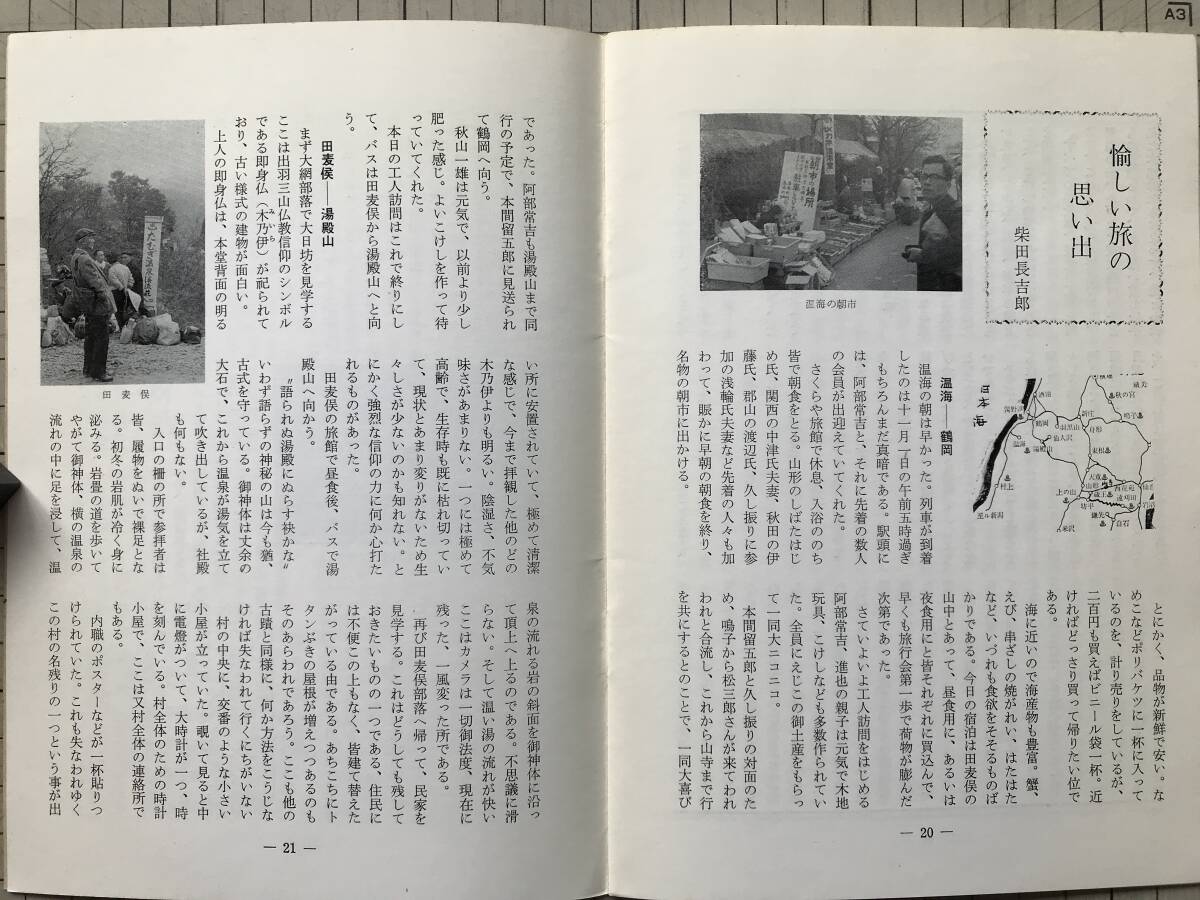 A3
愉しい旅の
思い出
柴田長吉郎
温海の朝市
温海――鶴岡
温海の朝は早かった。列車が到着
したのは十一月一日の午前五時過ぎ
もちろんまだ真暗である。駅頭に
は、阿部常吉と、それに先着の数人
の会員が出迎えていてくれた。
さくらや旅館で休息、入浴ののち
皆で朝食をとる。山形のしばたはじ
め氏、関西の中津氏夫妻、秋田の伊
藤氏、郡山の渡辺氏、久し振りに参
加の浅輪氏夫妻など先着の人々も加
わって、賑かに早朝の朝食を終り、
名物の朝市に出かける。
日本海
酒田
鶴岡
羽黒山
仙人沢
湯殿山
温海
村上
至新潟
新庄
舟形
鳴子
秋の宮
東根
山形
上の山
蔵王
遠刈田
鎌先
白石
米沢
とにかく、品物が新鮮で安い。な
めこなどポリバケツに一杯に入って
いるのを、計り売りをしているが、
二百円も買えばビニール袋一杯。近
ければどっさり買って帰りたい位で
ある。
海に近いので海産物も豊富。蟹、
えび、串ざしの焼がれい、はたはた
など、いづれも食欲をそそるものば
かりである。今日の宿泊は田麦俣の
山中とあって、昼食用に、あるいは
夜食用にと皆それぞれに買込んで、
早くも旅行会第一歩で荷物が膨んだ
次第であった。
さていよいよ工人訪問をはじめる
阿部常吉、進也の親子は元気で木地
玩具、こけしなども多数作られてい
た。全員にえじこの御土産をもらっ
て一同大ニコニコ。
本間留五郎と久し振りの対面のた
め、鳴子から松三郎さんが来てわれ
われと合流し、これから山寺まで行
を共にするとのことで、一同大喜び
― 20 ―
であった。阿部常吉も湯殿山まで同
行の予定で、本間留五郎に見送られ
て鶴岡へ向う。
秋山一雄は元気で、以前より少し
肥った感じ。よいこけしを作って待
っていてくれた。
本日の工人訪問はこれで終りにし
て、バスは田麦俣から湯殿山へと向
う。
田麦俣――湯殿山
まず大網部落で大日坊を見学する
ここは出羽三山仏教信仰のシンボル
である即身仏(木乃伊)が祀られて
みいら
おり、古い様式の建物が面白い。
上人の即身仏は、本堂背面の明る
田麦俣
い所に安置されていて、極めて清潔
な感じで、今まで拝観した他のどの
木乃伊よりも明るい。陰湿さ、不気
味さがあまりない。一つには極めて
高齢で、生存時も既に枯れ切ってい
て、現状とあまり変りがないため生
々しさが少ないのかも知れない。と
にかく強烈な信仰の力に何か心打た
れるものがあった。
田麦俣の旅館で昼食後、バスで湯
殿山へ向かう。
〝語られぬ湯殿にぬらす袂かな〟
いわず語らずの神秘の山は今も猶、
古式を守っている。御神体は丈余の
大石で、これから温泉が湯気を立て
て吹き出しているが、社殿
も何もない。
入口の柵の所で参拝者は
皆、履物をぬいで裸足とな
る。初冬の岩肌が冷く身に
泌みる。岩畳の道を歩いて
やがて御神体、横の温泉の
流れの中に足を浸して、温
泉の流れる岩の斜面を御神体に沿っ
て頂上へ上るのである。不思議に滑
らない。そして温い湯の流れが快い
ここはカメラは一切御法度、現在に
残った、一風変った所である。
再び田麦俣部落へ帰って、民家を
見学する。これはどうしても残して
おきたいものの一つである、住民に
は不便この上もなく、皆建て替えた
がっている由である。あちこちにト
タンぶきの屋根が増えつつあるのも
そのあらわれであろう。ここも他の
古蹟と同様に、何か方法をこうじな
ければ失なわれて行くにちがいない
村の中央に、交番のような小さい
小屋が立っていた。覗いて見ると中
に電燈がついて、大時計が一つ、時
を刻んでいる。村全体のための時計
小屋で、ここは又村全体の連絡所で
もある。
内職のポスターなどが一杯貼りつ
けられていた。これも失なわれゆく
この村の名残りの一つという事が出
― 21 ―